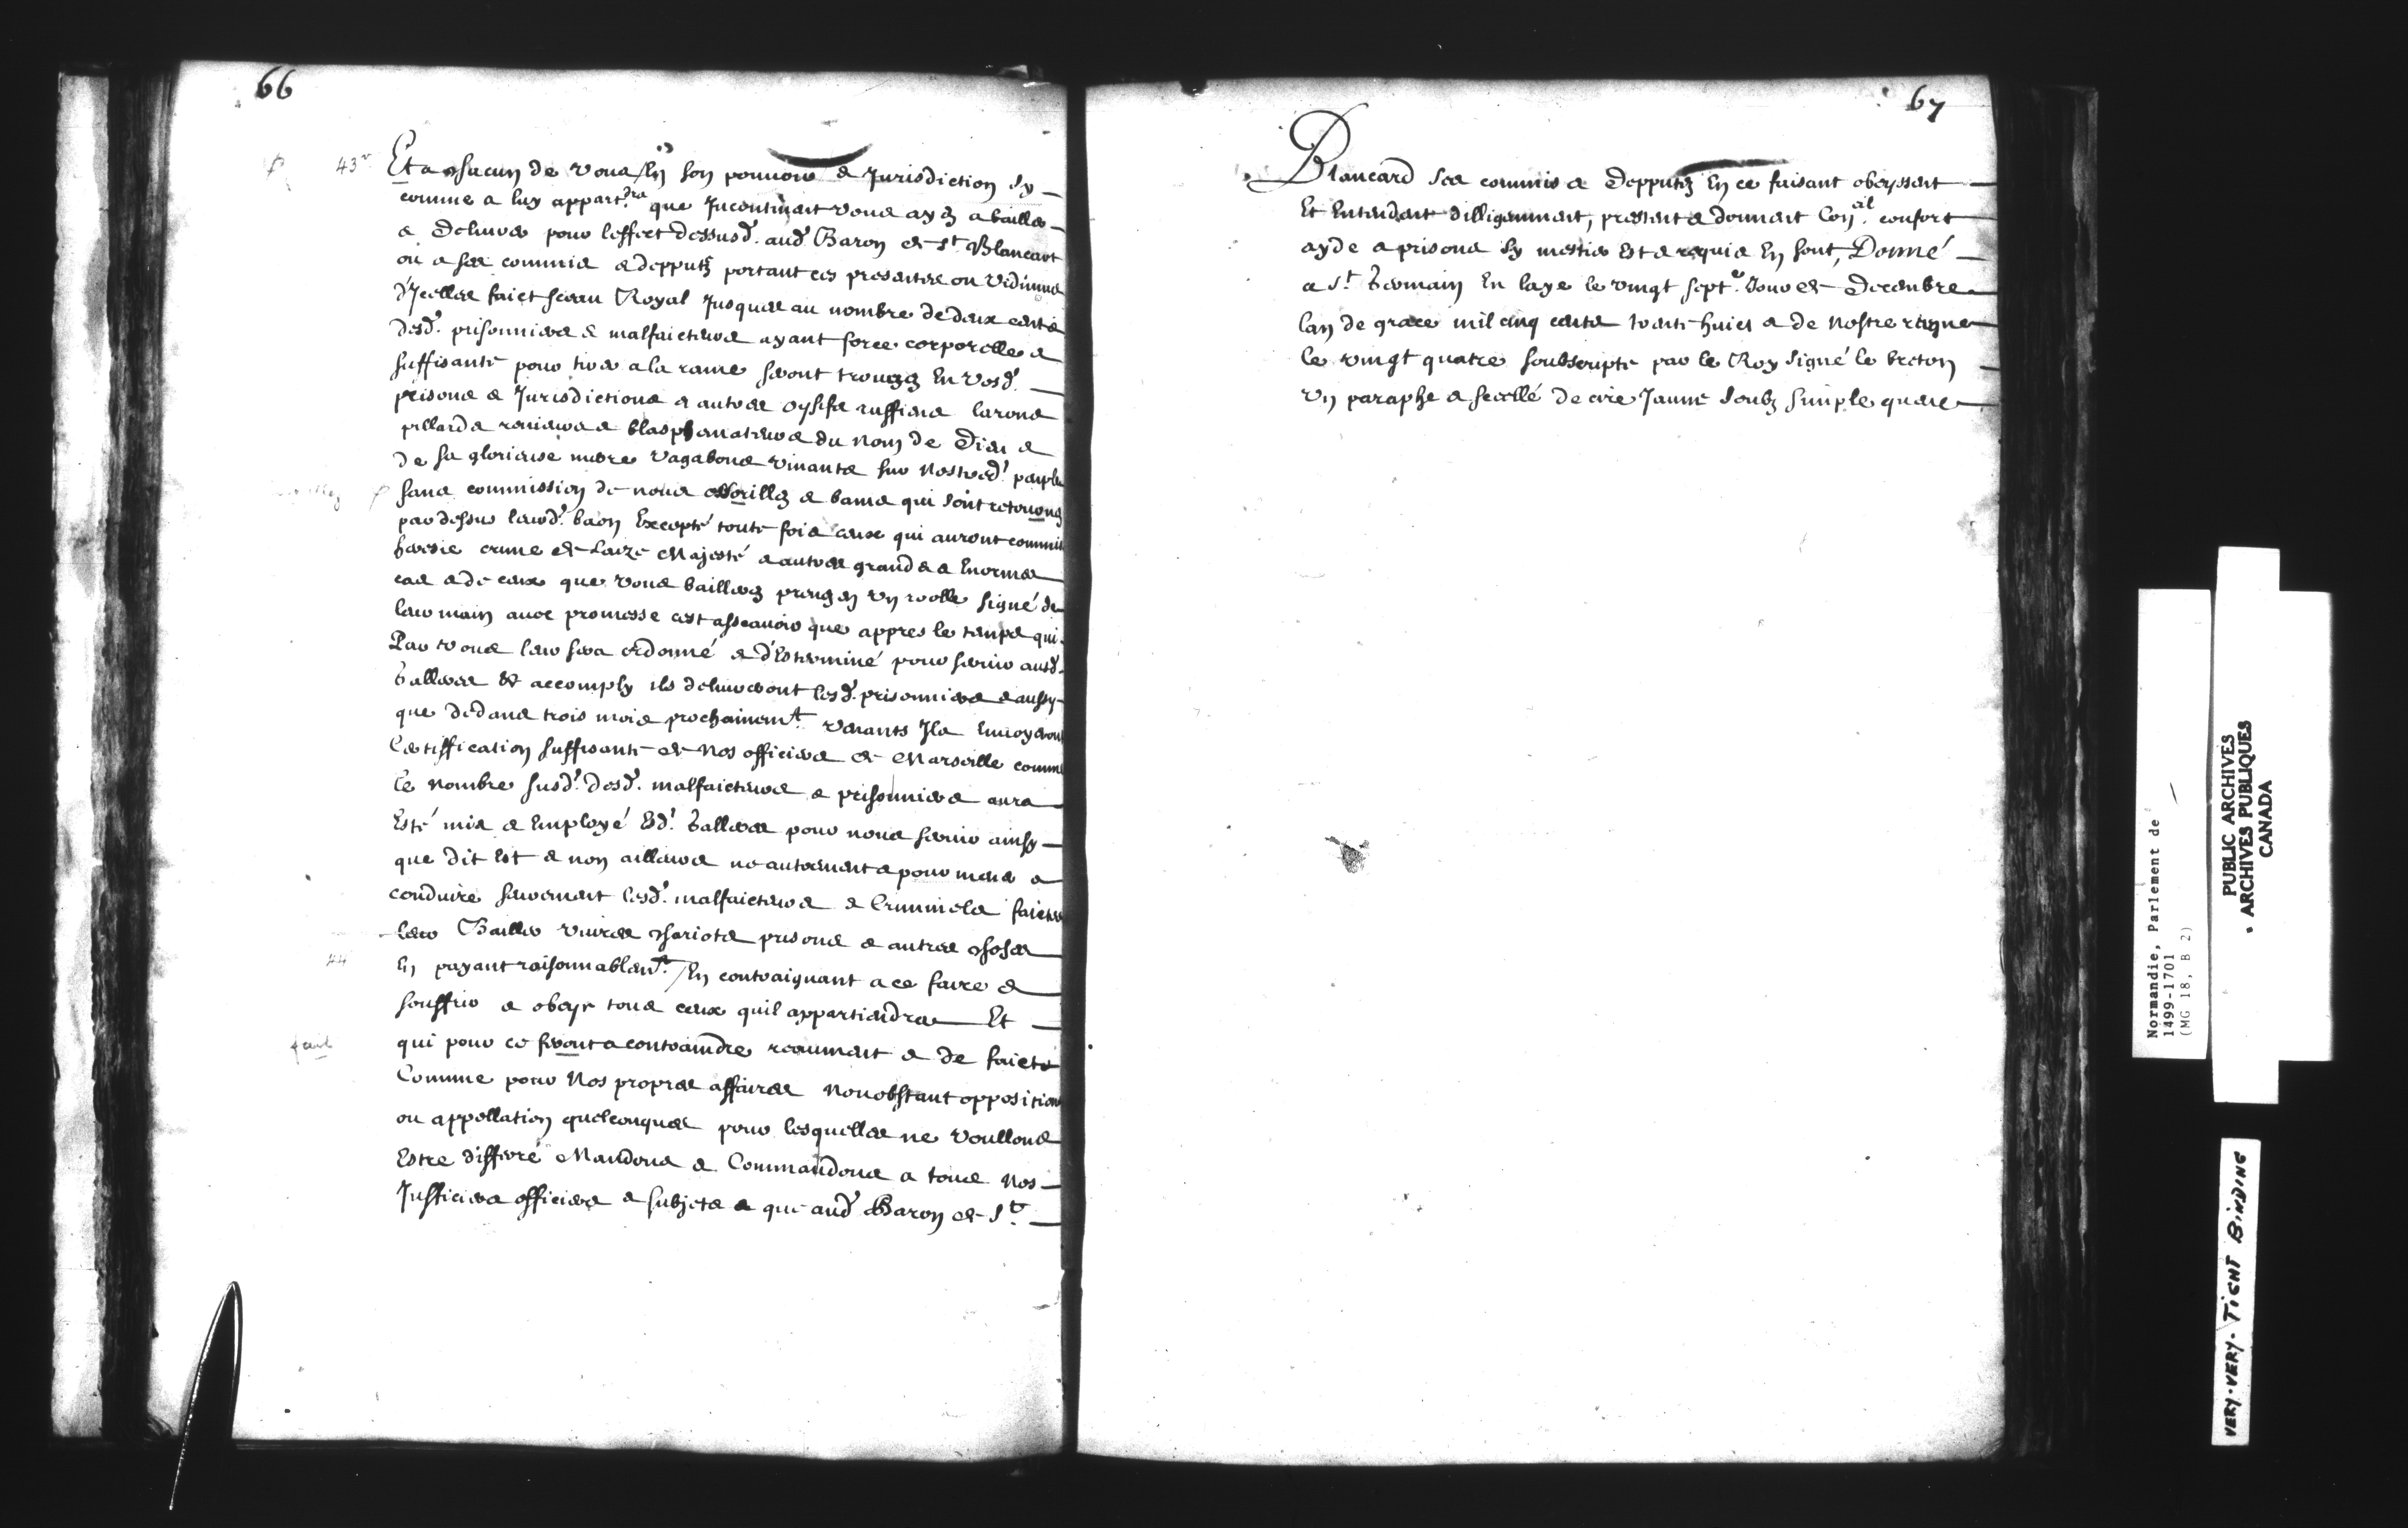 66
43v
Et a chacun de vous En son pouvoir & Jurisdiction sy
comme a luy appart.dra que Incontinant vous ayez a bailler
& delivrer pour leffect dessusd. aud. Baron de St Blancart
ou a ses commis & depputtz portant ces presentes ou vidimus
d'Icelles faict sceau Royal Jusques au nombre de deux cents
desd. prisonniers & malfaicteurs ayant force corporelle &
suffisante pour tirer a la rame seront trouvez En vosd.
prisons & Jurisdictions & autres oysifs ruffiens larons
pillards renieurs & blasphemateurs du nom de Dieu &
de sa glorieuse mere vagabons vivants sur nostred. peuple
sans commission de nous essorillez & banis qui sont retournez
par dessus leurd. ban Excepté toute fois ceux qui auront commis
heresie crime de Laize Majesté & autres grands & Enormes
cas & de ceux que vous baillerez prengez un rolle signé de
leur main avec promesse cest assçavoir que appres le temps qui
Par vous leur sera ordonné & d'Esterminé pour servir ausd.
Galleres & accomply ils delivreront lesd. prisonniers & aussy
que dedans trois mois prochainemt. venants Ils Envoyeront
Certiffication suffisante de nos officiers de Marseille comme
le nombre susd. desd. malfaicteurs & prisonniers aura
Esté mis & Employé Esd. Galleres pour nous servir ainsy
que dit Est & non ailleurs ne autrement & pour mener &
conduire seurement lesd. malfaicteurs & Criminels faictes
leur Bailler vivres chariots prisons & autres choses
44
En payant raisonnablemt. En contraignant a ce faire &
souffrir & obeyr tous ceux quil appartiendra Et
qui pour ce seront a contraindre reaument & de faict
Comme pour Nos propres affaires nonobstant oppositions
ou appellation quelconques pour lesquelles ne voullons
Estre differé Mandons & Commandons a tous nos
Justiciers officiers & subjets & que aud. Baron de St.
67
Blancard ses commis & depputtz En ce faisant obeyssent
Et Entendent dilligemment, prestent & donnent Con.eil confort
ayde & prisons sy mestier Est & requis En sont, Donné
a St. Germain En laye le vingt sept.e Jour de Decembre
lan de grace mil cinq cents trente huict & de nostre regne
le vingt quatre soubscripte par le Roy signé le breton
un paraphe & scellé de cire Jaune soubz simple queue
Normandie, Parlement de
1499-1701
(MG 18, B 2)
PUBLIC ARCHIVES
ARCHIVES PUBLIQUES
CANADA
VERY-VERY-TIGHT BINDING